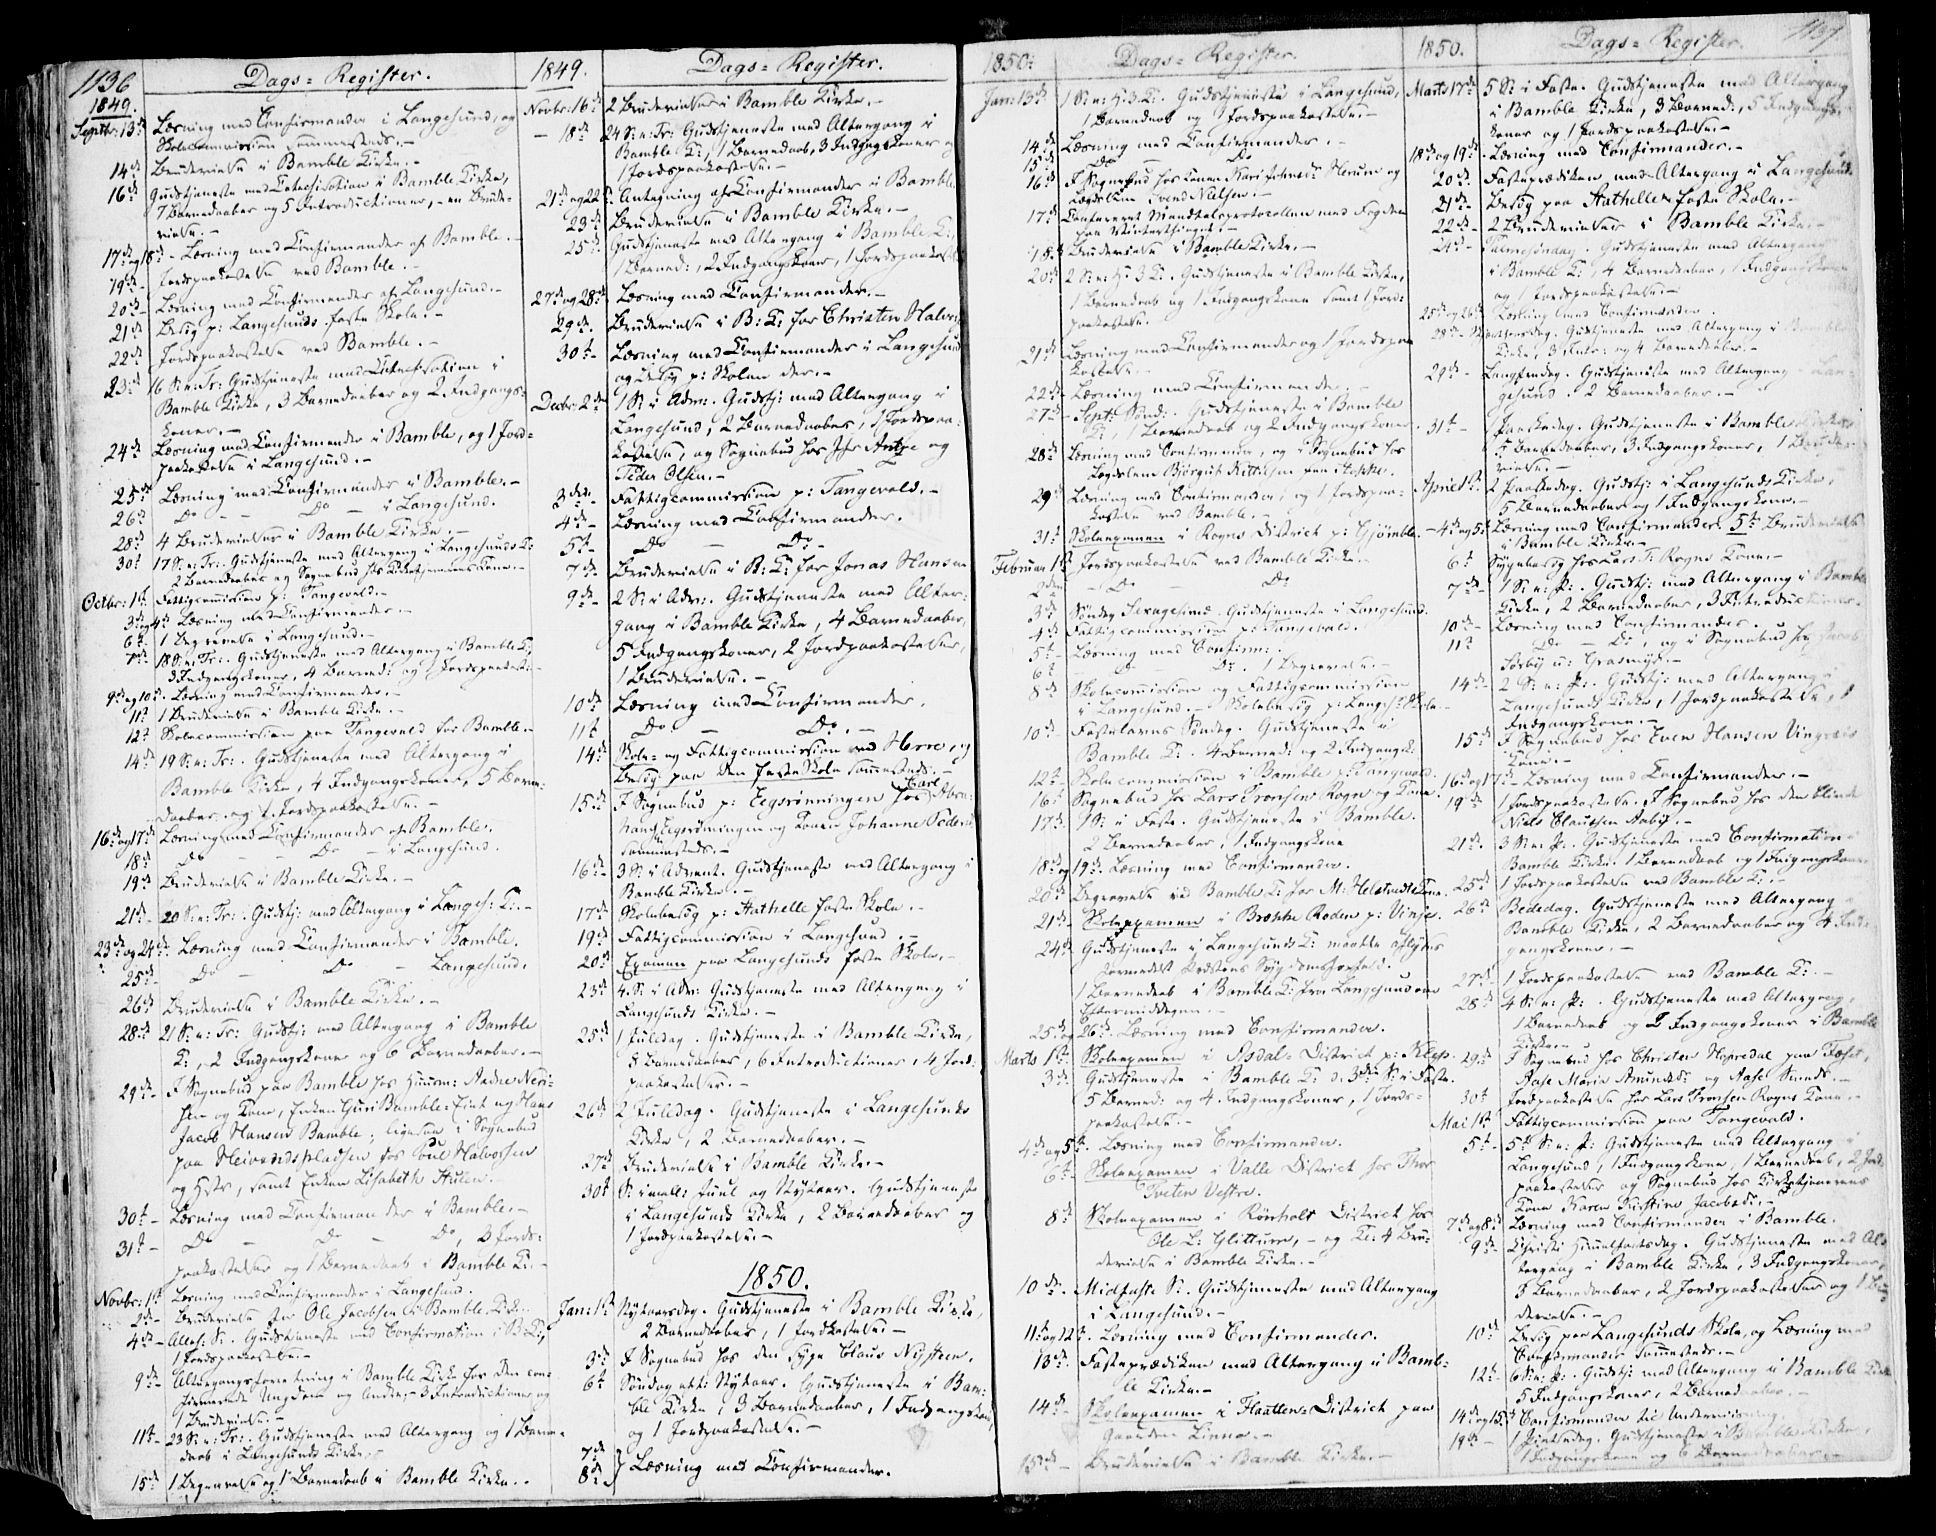 1136
Dags-Register.
1849.
Septbr: 13de Læsning med Confirmander i Langesund, og
Skolecommission sammesteds. -
14de Brudevielse i Bamble Kirke. -
16de Gudstjeneste med Catechisation i Bamble Kirke,
7 Barnedaaber og 5 Introductioner, - en Brude-
vielse. -
17de og 18de - Læsning med Confirmander af Bamble. -
19de - Jordpaakastelse ved Bamble. -
20de - Læsning med Confirmander af Langesund. -
21de Besøg p: Langesunds faste Skole. -
22de Jordpaakastelse ved Bamble. -
23de 16 S: e: Tr: Gudstjeneste med Catechisation i
Bamble Kirke, 3 Barnedaaber og 2 Indgangs-
koner. -
24de Læsning med Confirmander i Bamble, og 1 Jord-
paakastelse i Langesund. -
25de Læsning med Confirmander i Bamble. -
26de Do - - Do - i Langesund.
28de 4 Brudevielser i Bamble Kirke. -
30te 17 S: e: Tr: Gudstjeneste med Altergang i Langesunds K:
2 Barnedaaber og Sognebud hos Kirketjenerens Kone. -
Octbr: 1te Fattigcommission p: Tangevald. -
3de og 4de Læsning med Confirmander. -
6te 1 Begravelse i Langesund. -
7de 18 S: e: Tr: Gudstjeneste med Altergang i Bamble K:,
3 Indgangskoner, 4 Barned: og 1 Jordpaakast: -
9de og 10de. Læsning med Confirmander. -
11te 1 Brudevielse i Bamble Kirke. -
12te Skolecommission paa Tangevald for Bamble. -
14de 19 S: e: Tr: Gudstjeneste med Altergang i
Bamble Kirke, 4 Indgangskoner, 5 Barne-
daaber og 1 Jordpaakastelse. -
16de og 17de Læsning med Confirmander af Bamble.
18de Do - - Do - i Langesund.
19de Brudevielse i Bamble Kirke. -
21de - 20 S: e: Tr: Gudstj: med Altergang i Langes: K: -
23de og 24de: Læsning med Confirmander i Bamble.
25de - Do - Do - Langesund.
26de Brudevielse i Bamble Kirke. -
28de 21 S: e: Tr: Gudstj: med Altergang i Bamble
K:, 2 Indgangskoner og 6 Barnedaaber. -
29de - I Sognebud paa Bamble hos
og Kone, Enken Guri Bamble-Eiet og Hans
Jacob Hansen Bamble; ligesaa i Sognebud
paa Heivandspladsen hos Poul Halvorsen
og Hstr, samt Enken Lisabeth Hullen.
30te - Læsning med Confirmander i Bamble. -
31te - Do - Do - Do, 2 Jord-
paakastelser og 1 Barnedaab i Bamble K: -
Novbr: 1te Læsning med Confirmander i Langesund.
2de - Brudevielse for Ole Jacobsen i Bamble Kirke.
4de - Alleh: S: Gudstjeneste med Confirmation i B: K:,
1 Jordpaakastelse. -
9de - Altergangsforretning i Bamble Kirke for den con-
firmerede Ungdom og Andre; - 3 Introductioner og
1 Brudevielse. -
11te - 23 S: e: Tr: Gudstjeneste med Altergang og 1 Barne-
daab i Langesunds Kirke. -
15de 1 Begravelse og 1 Barnedaab i Bamble Kirke. -
1849.
Dags-Register.
Novbr: 16de 2 Brudevielser i Bamble Kirke. -
- 18de 24 S: e: Tr: Gudstjeneste med Altergang i
Bamble K:, 1 Barnedaab, 3 Indgangskoner og
1 Jordpaakastelse. -
21de og 22de: Antegning af Confirmander i Bamble.
23de Brudevielse i Bamble Kirke. -
25de Gudstjeneste med Altergang i Bamble K:,
1 Barned:, 2 Indgangskoner, 1 Jordpaakast:
27de og 28de Læsning med Confirmander. -
29de. Brudevielse i B: K: for Christen Halvors:
30te - Læsning med Confirmander i Langesund
og Besøg p: Skolen der. -
Decbr: 2den 1 S: i Adv: Gudstj: med Altergang i
Langesund, 2 Barnedaaber, 1 Jordpaa-
kastelse, og Sognebud hos Antze og
Peder Olsen. -
3die. Fattigcommission p: Tangevald. -
4de - Læsning med Confirmander.
5te - Do - Do -
7de - Brudevielse i B: K: for Jonas Hansen
9de - 2 S: i Adv: Gudstjeneste med Alter-
gang i Bamble Kirke, 4 Barnedaaber,
5 Indgangskoner, 2 Jordpaakastelser,
1 Brudevielse. -
10de Læsning med Confirmander.
11te Do - Do -
14de Skole- og Fattigcommission ved Herre, og
Besøg paa den faste Skole sammesteds. -
15de I Sognebud p: Eegsrønningen hos Carl Abra-
hams Eegsrønningen og Konen Johanne Peders:
sammesteds. -
16de - 3 S: i Advent. Gudstjeneste med Altergang i
Bamble Kirke. -
17de Skolebesøg p: Stathelle faste Skole. -
19de Fattigcommission i Langesund. -
20de Examen paa Langesunds faste Skole. -
23de 4. S: i Adv: Gudstjeneste med Altergang i
Langesunds Kirke. -
25de 1 Juledag. Gudstjeneste i Bamble Kirke,
8 Barnedaaber, 6 Introductioner, 4 Jord-
paakastelser. -
26de 2 Juledag. Gudstjeneste i Langesunds
Kirke, 2 Barnedaaber. -
27de Brudevielse i Bamble Kirke. -
30te S: imell: Juul og Nytaar. Gudstjeneste
i Langesunds Kirke, 2 Barnedaaber og
1 Jordpaakastelse. -
1850.
Jan: 1te Nytaarsdag. Gudstjeneste i Bamble Kirke,
2 Barnedaaber, 1 Jordkastelse. -
3die I Sognebud hos den syge Claus Nysteen.
6te Søndag eft: Nytaar. Gudstjeneste i Bam-
ble Kirke, 3 Barnedaaber, 1 Indgangskone,
og 1 Jordpaakastelse. -
7de
8de } Læsning med Confirmander.
1850:
Dags-Register.
Jan: 13de 1 S: e: H. 3 K: Gudstjeneste i Langesund,
1 Barnedaab og 1 Jordpaakastelse. -
14de Læsning med Confirmander. -
15de Do - Do
16de I Sognebud hos Kari og
Lægdslem Svend Nielsen. -
17de Confereret Mandtalsprotocollen med Fogden
paa Vinterthinget. -
18de Brudevielse i Bamble Kirke. -
20de 2 S: e: H. 3 K: Gudstjeneste i Bamble Kirke,
1 Barnedaab og 1 Indgangskone samt 1 Jord-
paakastelse.
21de Læsning med Confirmander og 1 Jordpaa-
kastelse. -
22de - Læsning med Confirmander. -
27de - Sept: Sønd: Gudstjeneste i Bamble
K:, 1 Barnedaab og 2 Indgangskoner.
28de Læsning med Confirmander, og i Sognebud hos
Lægdslem Bjørgit
29de Læsning med Confirmander, og 1 Jordpaa-
kastelse ved Bamble. -
31te Skoleexamen i Rogns District p: Gjømle. -
Februar 1te Jordpaakastelse ved Bamble Kirke. -
2den - Do - Do
3die Søndag Sexagesima. Gudstjeneste i Langesund.
4de Fattigcommission p: Tangevald.
5te - Læsning med Confirm:.
6te Do - Do. 1 Begravelse. -
8de Skolecommission og Fattigcommission
i Langesund. - Skolebesøg p: Langes: Skole.
10de - Fastelavns Søndag. Gudstjeneste i
Bamble K: 4 Barned: og 2 Indgangsk:
12te - Skolecommission i Bamble p: Tangevald.
16de Sognebud hos Lars Tronsen Rogn og Kone.
17de. 1 S: i Faste. Gudstjeneste i Bamble.
2 Barnedaaber, 1 Indgangskone
18de og 19de. Læsning med Confirmander.
20de - Begravelse ved Bamble K: for M: Helstvedts Kone.
21de - Skoleexamen i Brække Roden p: Vinje.
24de - Gudstjeneste i Langesunds K: maatte aflyses
formedelst Præstens Sygdomsforfald.
1 Barnedaab i Bamble K: fra Langesund om
Eftermiddagen. -
25de og 26de. Læsning med Confirmander.
Marts 1te: Skoleexamen i Asdal-District p: Klep. -
3de. Gudstjeneste i Bamble K: d: 3die S: i Faste.
5 Barned: og 4 Indgangskoner, 1 Jord-
paakastelse. -
4de og 5te. Læsning med Confirmander.
6te - Skoleexamen i Valle District hos Thor
Tveten Vestre.
8de Skoleexamen i Rønholt District hos
Ole L: Glittum, - og Kl: 4 Bru-
devielse i Bamble Kirke. -
10de. Midfaste S: Gudstjeneste med Altergang
i Langesund. -
11te og 12te. Læsning med Confirmander.
13de. Fasteprædiken med Altergang i Bamb-
le Kirke. -
14de - Skoleexamen i Flaatten-District paa
Gaarden Linna. -
15de - Brudevielse i Bamble Kirke. -
1850.
Dags-Register.
1137
Marts 17de 5 S: i Faste. Gudstjeneste med Altergang
i Bamble Kirke, 3 Barned:, 5 Indgangs-
koner og 1 Jordpaakastelse. -
18de og 19de. Læsning med Confirmander. -
20de. Fasteprædiken med Altergang i Langesund.
21de - Besøg paa Stathelle faste Skole. -
22de - 2 Brudevielser i Bamble Kirke. -
24de - Palmesøndag. Gudstjeneste med Altergang
i Bamble K:, 4 Barnedaaber, 1 Indgangskone
og 1 Jordpaakastelse. -
25de og 26de Læsning med Confirmander.
28de - Skjærthorsdag. Gudstjeneste med Altergang i Bamble
Kirke, 3 Intr: og 4 Barnedaaber. -
29de - Langfredag. Gudstjeneste med Altergang i Lan-
gesund. 2 Barnedaaber. -
31te - 1 Paaskedag. Gudstjeneste i Bamble Kirke,
5 Barnedaaber, 3 Indgangskoner, 1 Brude-
vielse. -
April 1te. 2 Paaskedag. Gudstj: i Langesunds Kirke,
5 Barnedaaber og 1 Indgangskone. -
- 4de og 5te Læsning med Confirmander. 5te: Brudevielse
i Bamble Kirke. -
6te Sygebesøg hos Lars T: Rogns Kone. -
7de - 1 S: e: P: Gudstj: med Altergang i Bamble
Kirke, 2 Barnedaaber, 3 Introductioner. -
10de - Læsning med Confirmander.
11te Do - Do, og i Sognebud hos
14de - 2 S: e: P: Gudstj: med Altergang i
Langesunds Kirke, 1 Jordpaakastelse, 1
Indgangskone. -
15de I Sognebud hos Even Hansen
Kone. -
16de og 17de - Læsning med Confirmander. -
19de 1 Jordpaakastelse. I Sognebud hos den blinde
Niels Clausen Aaby. -
21de. 3 S: e: P: Gudstjeneste med Confirmation i
Bamble Kirke. 1 Barnedaab og 1 Indgangskone.
23de 1 Jordpaakastelse ved Bamble K: -
26de Bededag. Gudstjeneste med Altergang i
Bamble Kirke, 2 Barnedaaber og 4 Ind-
gangskoner. -
27de - 1 Jordpaakastelse ved Bamble K: -
28de 4 S: e: P: Gudstjeneste med Altergang,
1 Barnedaab og 2 Indgangskoner i Bamble
Kirke. -
29de I Sognebud hos Christen paa
Aase Marie Amundsd: og Aase
30te Jordpaakastelse for Lars Tronsen Rogns Kone. -
Mai 1te Fattigcommission paa Tangevald.
5te - 5te S: e: P: Gudstjeneste med Altergang i
Langesund, 1 Indgangskone, 1 Barnedaab, 2 Jord-
paakastelser og Sognebud hos Kirketjenerens
Kone Karen Kirstine Jacobsd: -
7de og 8de Læsning med Confirmander i Bamble.
9de - Christi Himmelfartsdag. Gudstjeneste med Al-
tergang i Bamble Kirke, 3 Indgangskoner,
8 Barnedaaber, 2 Jordpaakastelser og 1 Bru-
devielse. -
10de Besøg paa Langesunds Skole, og Læsning med
Confirmander sammesteds. -
12te - 6 S: e: P: Gudstj: med Altergang i Bamble Kirke
5 Indgangskoner, 2 Barnedaaber. -
14de og 15de Confirmander til Underviisning.
19de - 1 Pintsedag. Gudstjeneste i Bamble Kirke,
1 Indgangskone og 6 Barnedaaber. -